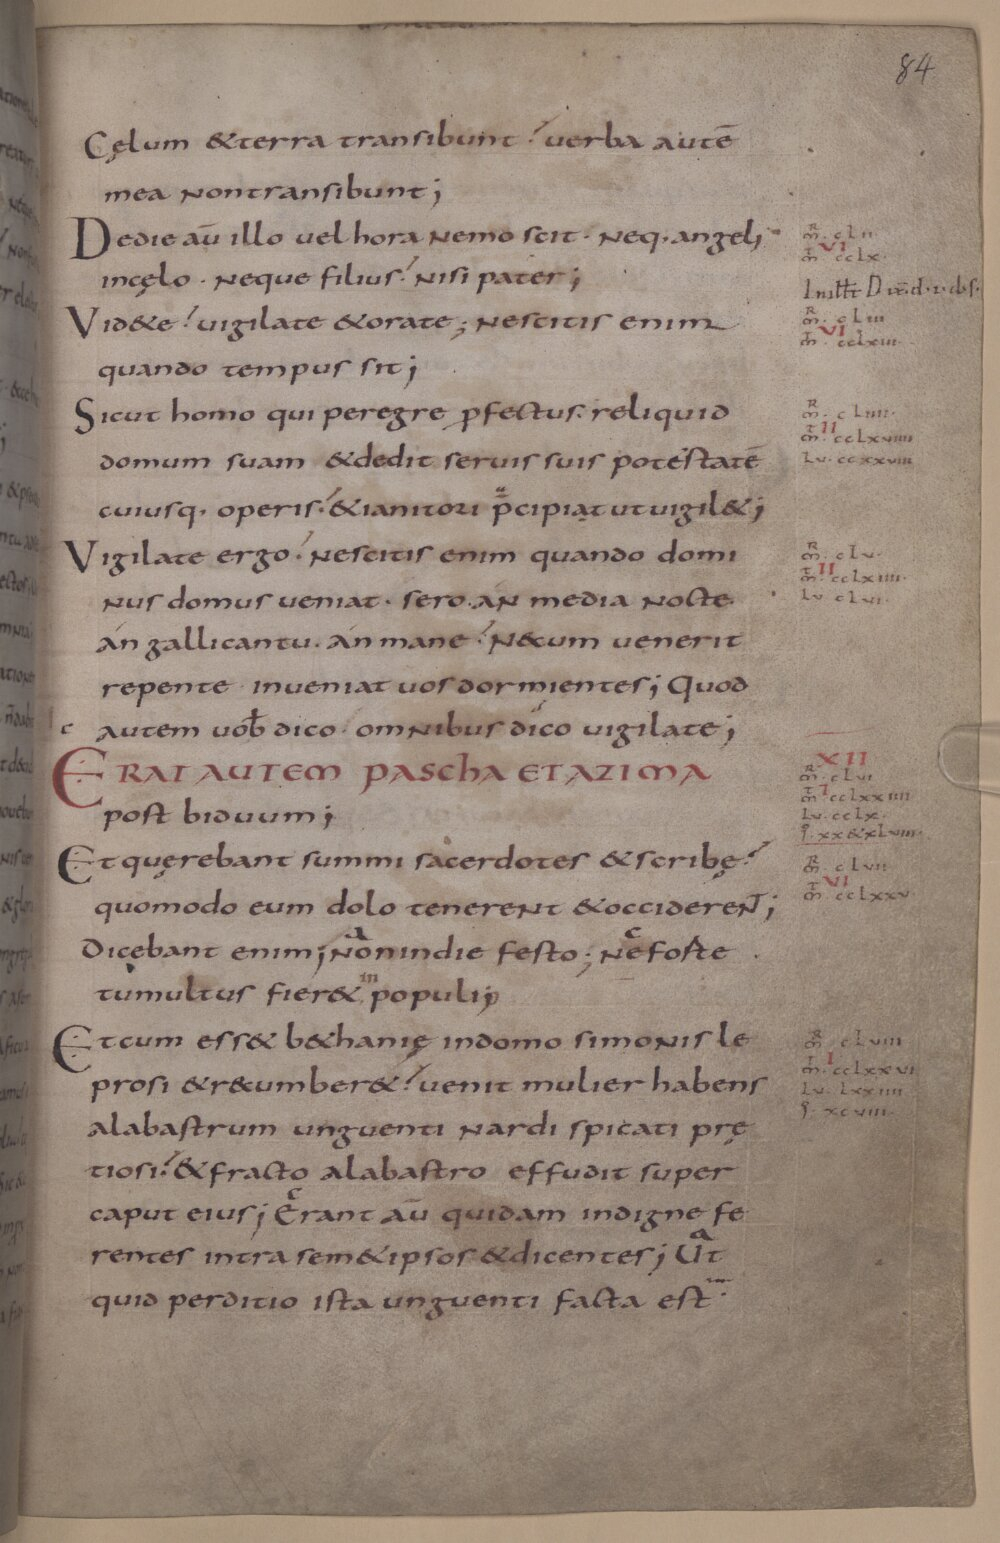 84
Cęlum &terra transibunt verba autē
mea non transibunt;
De die aū illo vel hora nemo scit· neq· angeli
in cęlo· neque filius nisi pater;
Vid&e vigilate &orate; nescitis enim
quando tempus sit;
Sicut homo qui peregre ꝓfectus reliquid
domum suam &dedit servis suis potestatē
cuiusq· operis &ianitori p̄cipiat ut vigil&;
Vigilate ergo nescitis enim quando domi
nus domus veniat· sero· án media nocte
án gallicantu· án mane Necum venerit
repente inveniat vos dormientes; Quod
autem vob̄ dico· omnibus dico vigilate;
ERAT AUTEM PASCHA ET AZIMA
post biduum;
Et quęrebant summi sacerdotes &scribę
quomodo eum dolo tenerent &occiderent;
Dicebant enim; Non in die festo; Ne foste
tumultus fier& in populi;
Et cum ess& b&hanię in domo simonis le
prosi &r&umber& venit mulier habens
alabastrum unguenti nardi spicati prę
tiosi &fracto alabastro effudit super
caput eius; Erant aū quidam indigne fe
rentes intra sem&ipsos &dicentes; Ut
quid perditio ista unguenti facta est
R
m̄· clii
VI
m̄· cclx·
R
m̄· cliii
VI
m̄· cclxiii·
R
m̄· cliiii·
II
m̄· cclxviiii
Lu· ccxxviii
R
m̄· clv·
II
m̄· cclxiiii·
Lu clvi·
c
XII
R
m̄· clvi
I
m̄· cclxxiiii
Lu· cclx·
xx&xlviii·
R
m̄· clvii
VI
m̄· cclxxv
R
m̄· clviii
I
m̄· cclxxvi
Lu· lxxiiii
xcviii·